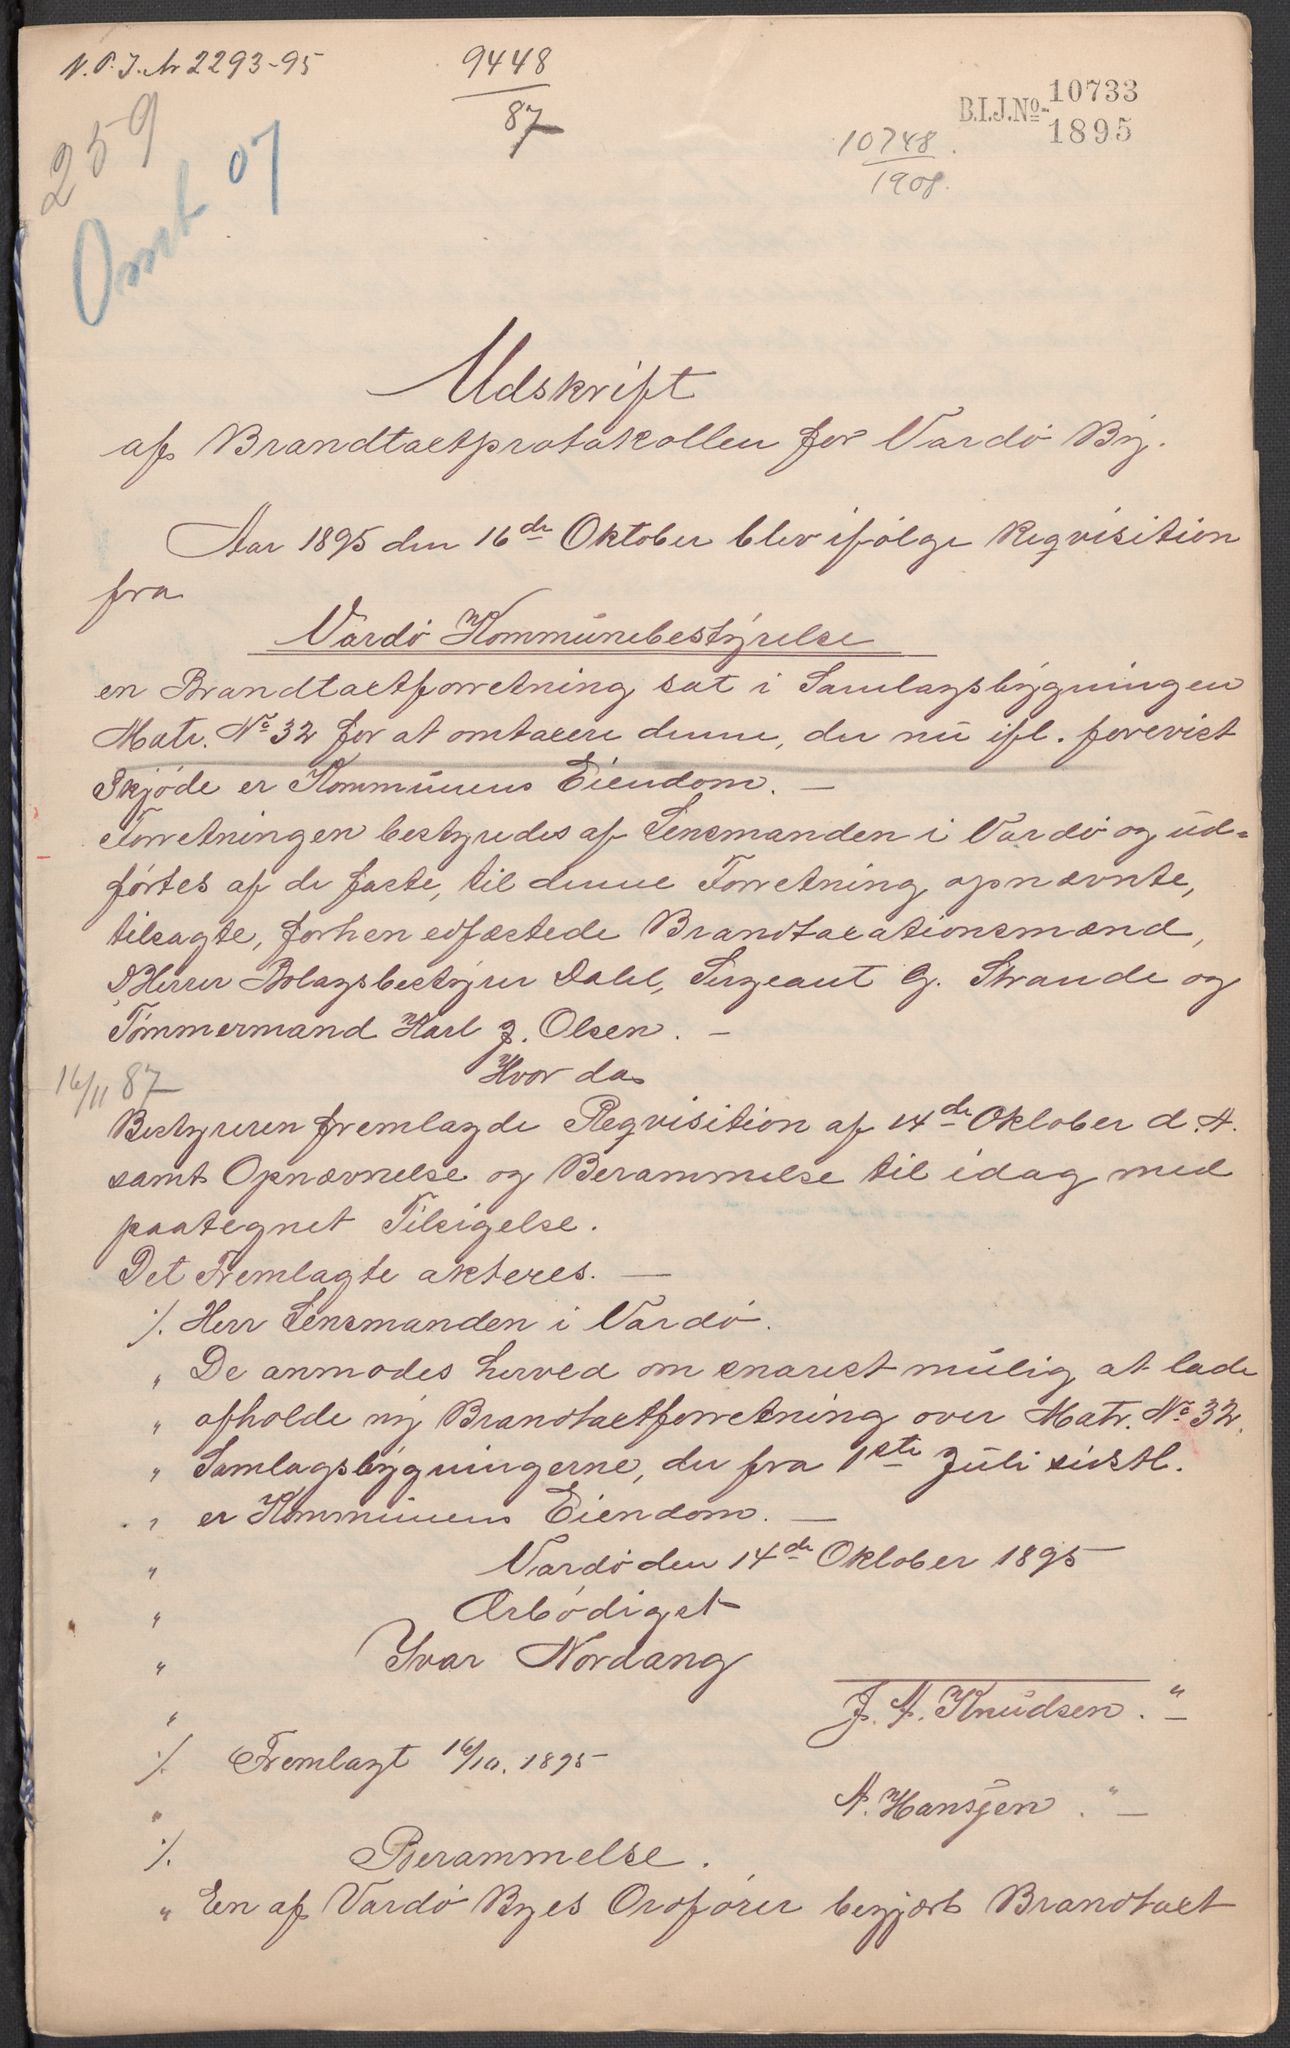 N.P.J. Nr 2293-95
9448
87
B.I.J.No- 10733
1895
10748.
1908.
259
Omt. 07
Udskrift
af Brandtaxtprotokollen for Vardö By.
Aar 1895 den 16de Oktober blev ifölge Reqvisition
fra
Vardö Kommunebestyrelse
en Brandtaxtforretning sat i Samlagsbygningen
Matr. No 32 for at omtaxere denne, der nu ifl. forevist
Skjöde er Kommunens Eiendom. —
Forretningen bestyredes af Lensmanden i Vardö og ud=
förtes af de faste, til denne Forretning opnævnte,
tilsagte, forhen edfæstede Brandtaxationsmænd,
D'Herrer Bolagsbestyrer Dahl, Sergeant G. Strande og
Tömmermand Karl J. Olsen. —
Hvor da
16/11 87
Bestyreren fremlagde Reqvisition af 14de Oktober d. A.
samt Opnævnelse og Berammelse til idag med
paategnet Tilsigelse.
Det Fremlagte akteres. —
./. Herr Lensmanden i Vardö.
" De anmodes herved om snarest mulig at lade
" afholde ny Brandtaxtforretning over Matr. No 32.
" Samlagsbygningerne, der fra 1ste Juli sidstl.
" er Kommunens Eiendom. —
" Vardö den 14de Oktober 1895
" Ærbödigst
" Yvar Nordang
" J. A. Knudsen. " —
./. Fremlagt 16/10. 1895
" A. Hansjen. " —
./. Berammelse.
" En af Vardö Byes Ordförer begjært Brandtaxt